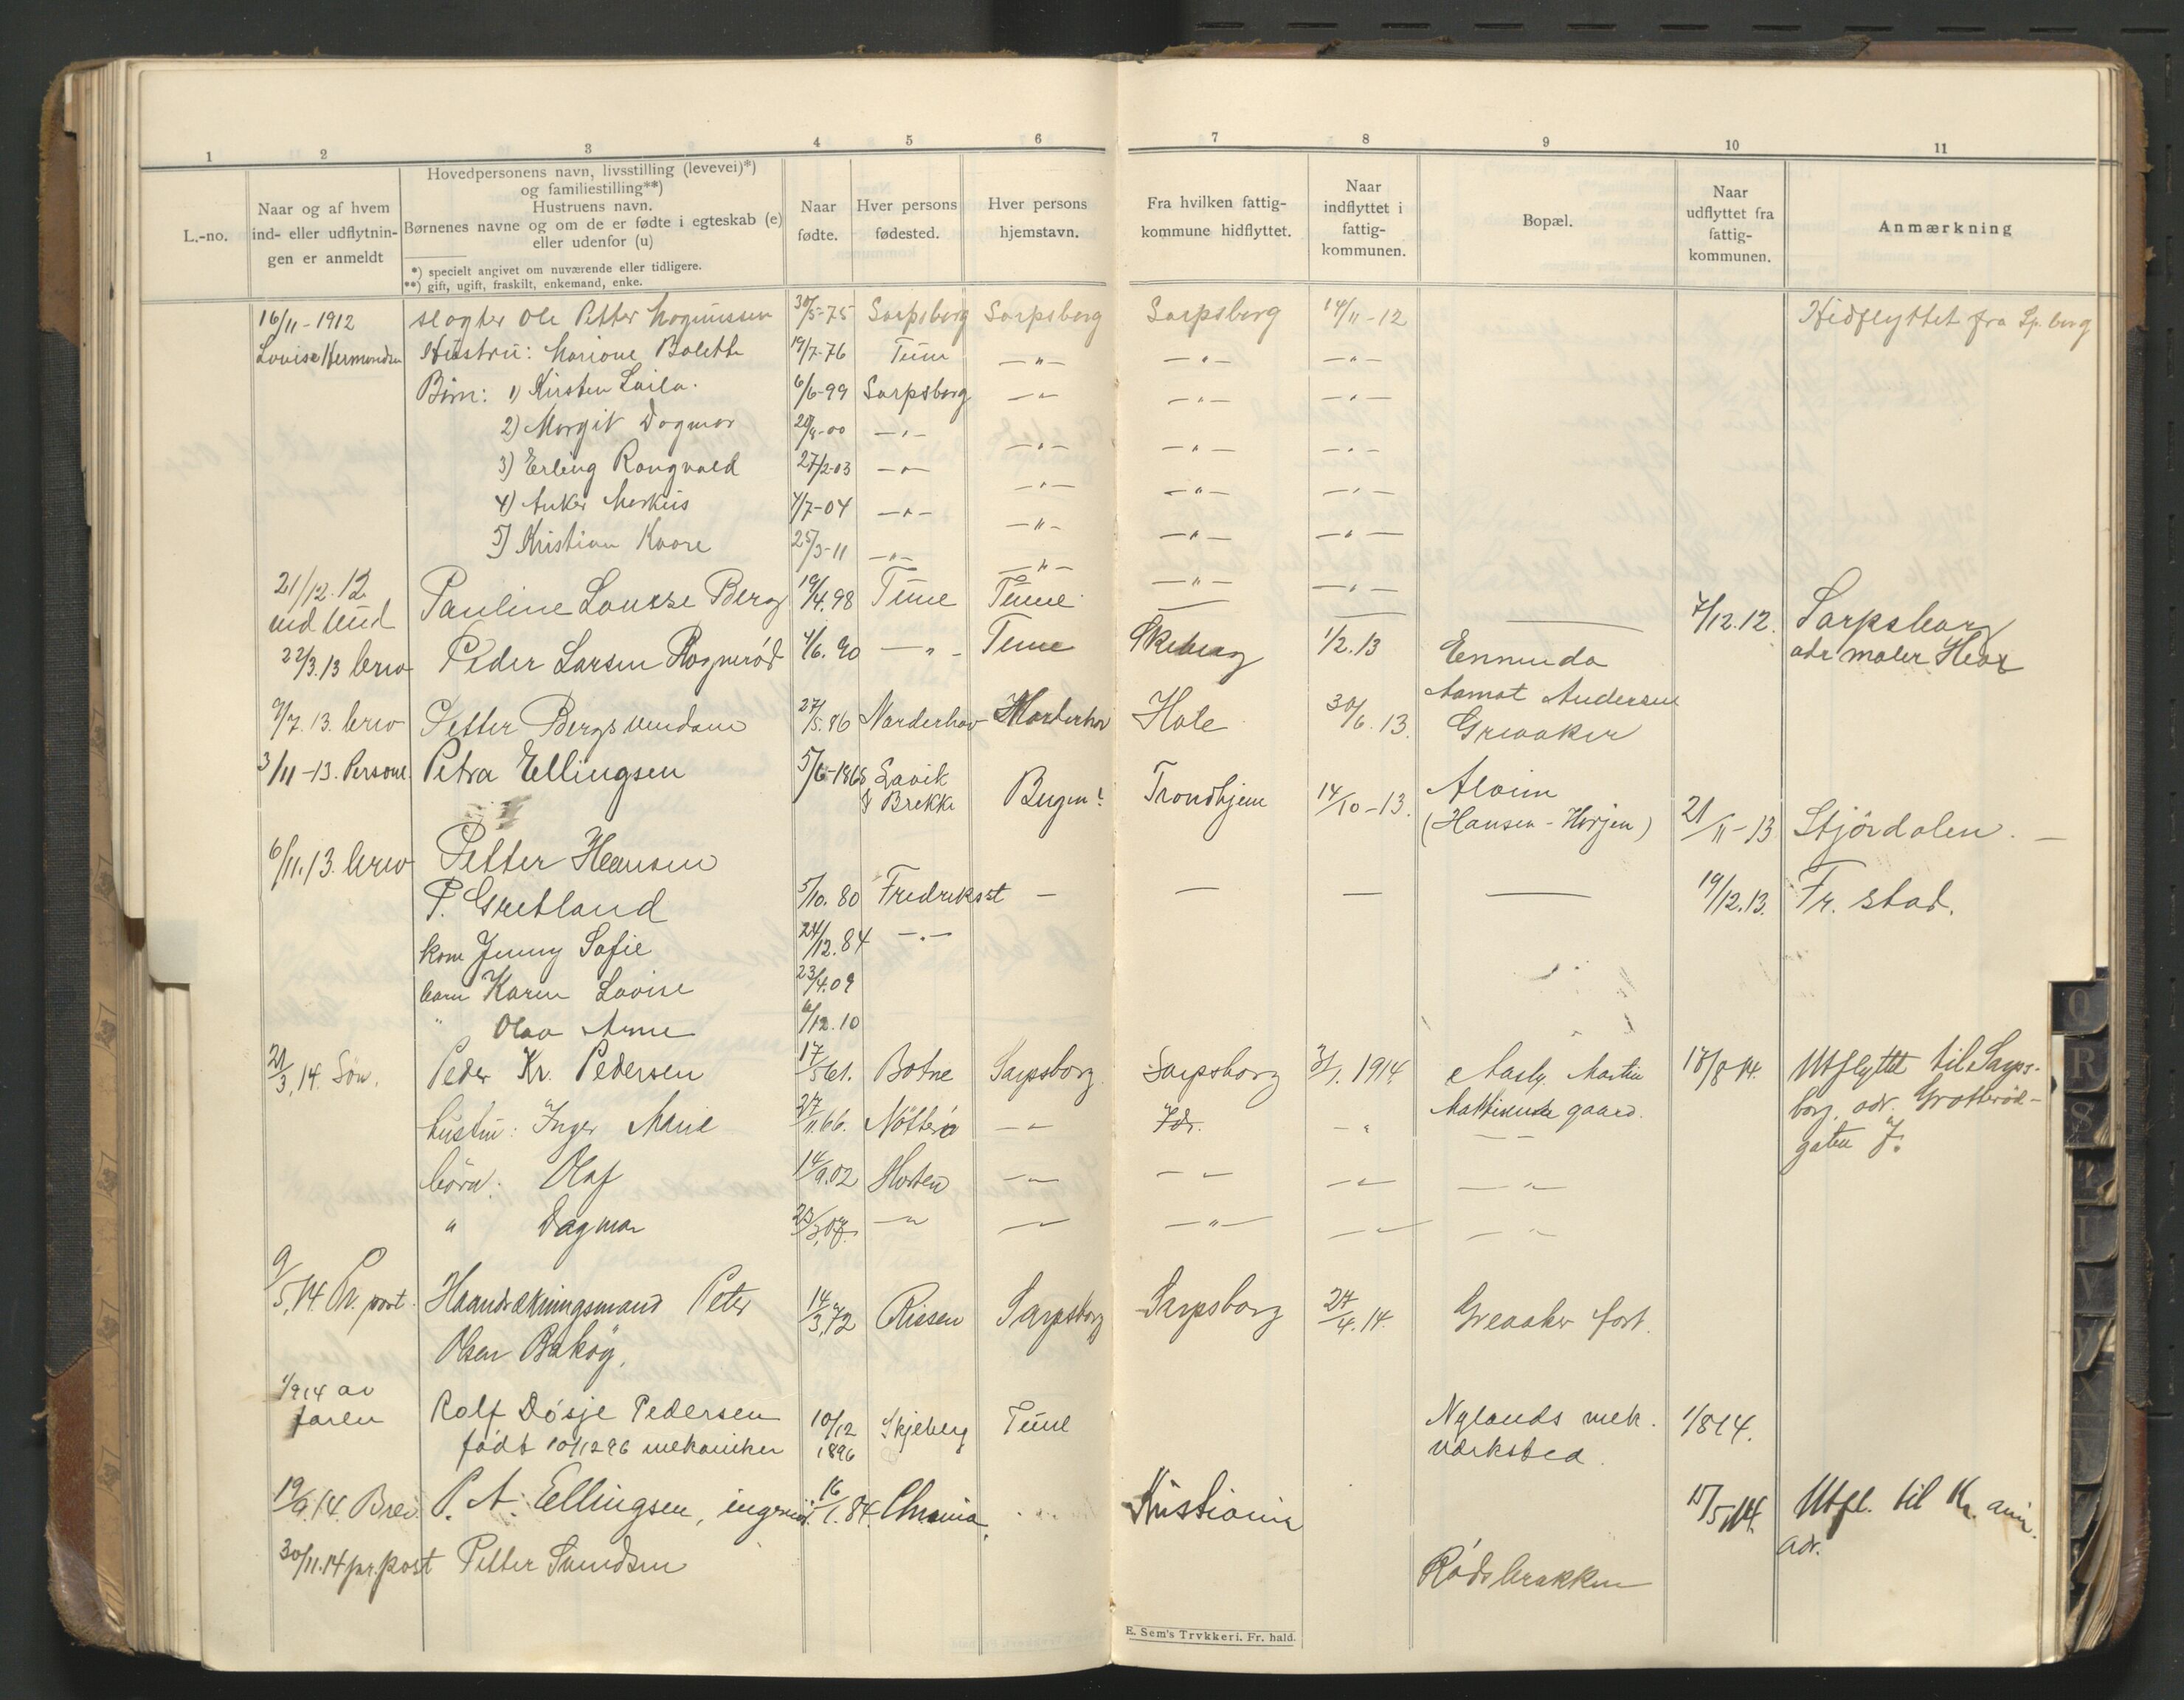 1 2 3 4 5 6 7 8 9 10 11
L.-no.
Naar og af hvem
ind- eller udflytnin-
gen er anmeldt
Hovedpersonens navn, livsstilling (levevei)*)
og familiestilling**)
Hustruens navn.
Børnenes navne og om de er fødte i egteskab (e)
eller udenfor (u)
*) specielt angivet om nuværende eller tidligere.
**) gift, ugift, fraskilt, enkemand, enke.
Naar
fødte.
Hver persons
fødested.
Hver persons
hjemstavn.
Fra hvilken fattig-
kommune hidflyttet.
Naar
indflyttet i
fattig-
kommunen.
Bopæl.
Naar
udflyttet fra
fattig-
kommunen.
Anmærkning
16/11-1912 slagter Ole Petter Magnussen 30/5-75 Sarpsborg Sarpsborg Sarpsborg 14/11-12 Hidflyttet fra Sp.borg
Louise Hermundsen Hustru: Marione Bolette 19/7-76 Tune —"— —"— —"—
Børn: 1) Kirsten Laila. 6/6-99 Sarpsborg —"— —"— —"—
2) Margit Dagmar -00 —"— —"— —"— —"—
3) Erling Rangvald 27/2-03 —"— —"— —"— —"—
4) Anker Markus 4/7-04 —"— —"— —"— —"—
5) Kristian Kaare 25/3-11 —"— —"— —"— —"—
21/12.12 Pauline Lousse Berg 19/4.98 Tune Tune — — — 7/12.12. Sarpsborg
adr maler Hear
22/3.13 brev Peder Larsen Rognerød 4/6.90 —"— Tune Skeberg 1/2.13 Ennunda
9/7.13. brev Petter Bergsundam 27/5.86 Narderhov Narderhov Hole 30/6.13. Aamot Andersen
Greaaker
3/11-13. Personl. Petra Ellingsen 5/6-1865 Lavik
& Brekke Bergen? Trondhjem 14/10-13. Alvim
(Hansen-Horjen) 21/11-13 Stjørdalen. —
6/11.13. brev Petter Hansen
P. Gretland 5/10.80 Fredrikst — — — — 19/12.13. Fr. stad.
kone Jenny Sofie 24/12.84 —"—
barn Karen Lovise 23/4.09
" Olaa Anne 6/12.10
21/3.14. Søn. Peder Kr. Pedersen 17/5 61. Botne Sarpsborg Sarpsborg 3/1. 1914 Aasly. Martin 17/8 14. Utflyttet til Sarps-
hustru: Inger Marie 27/11 66. Nøtterø —"— Idr. —"— gaard. borg. adr. Grotterød-
gaten 7.
børn: Olaf 14/9.02 Horten —"— —"— —"— —"—
" Dagmar 07. —"— —"— —"— —"— —"—
9/5.14. Pr. post. Haandrækningsmand Peter 14/3.72 Rissen Sarpsborg Sarpsborg 27/4.14. Greaaker fort.
Olsen Bakøy.
1/914 av
faren Rolf Døsje Pedersen 10/12 Skjeberg Tune Nylands mek. 1/814.
født 10/1296 mekaniker 1896 værksted.
19/9.14. Brev P. A. Ellingsen, ingeniør. 16/1.84. Chrania. Kristiania 15/5.14. Utfl. til Kr.ania.
adr.
30/11.14 pr. post Petter Svendsen Rødsbrakken
E. Sem's Trykkeri. Fr. hald.
Q
R
S
T
V
W
X
Y